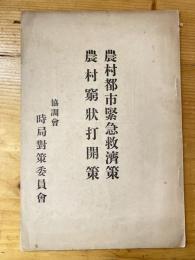 農村都市緊急救濟策
農村窮狀打開策
協調會
時局對策委員會